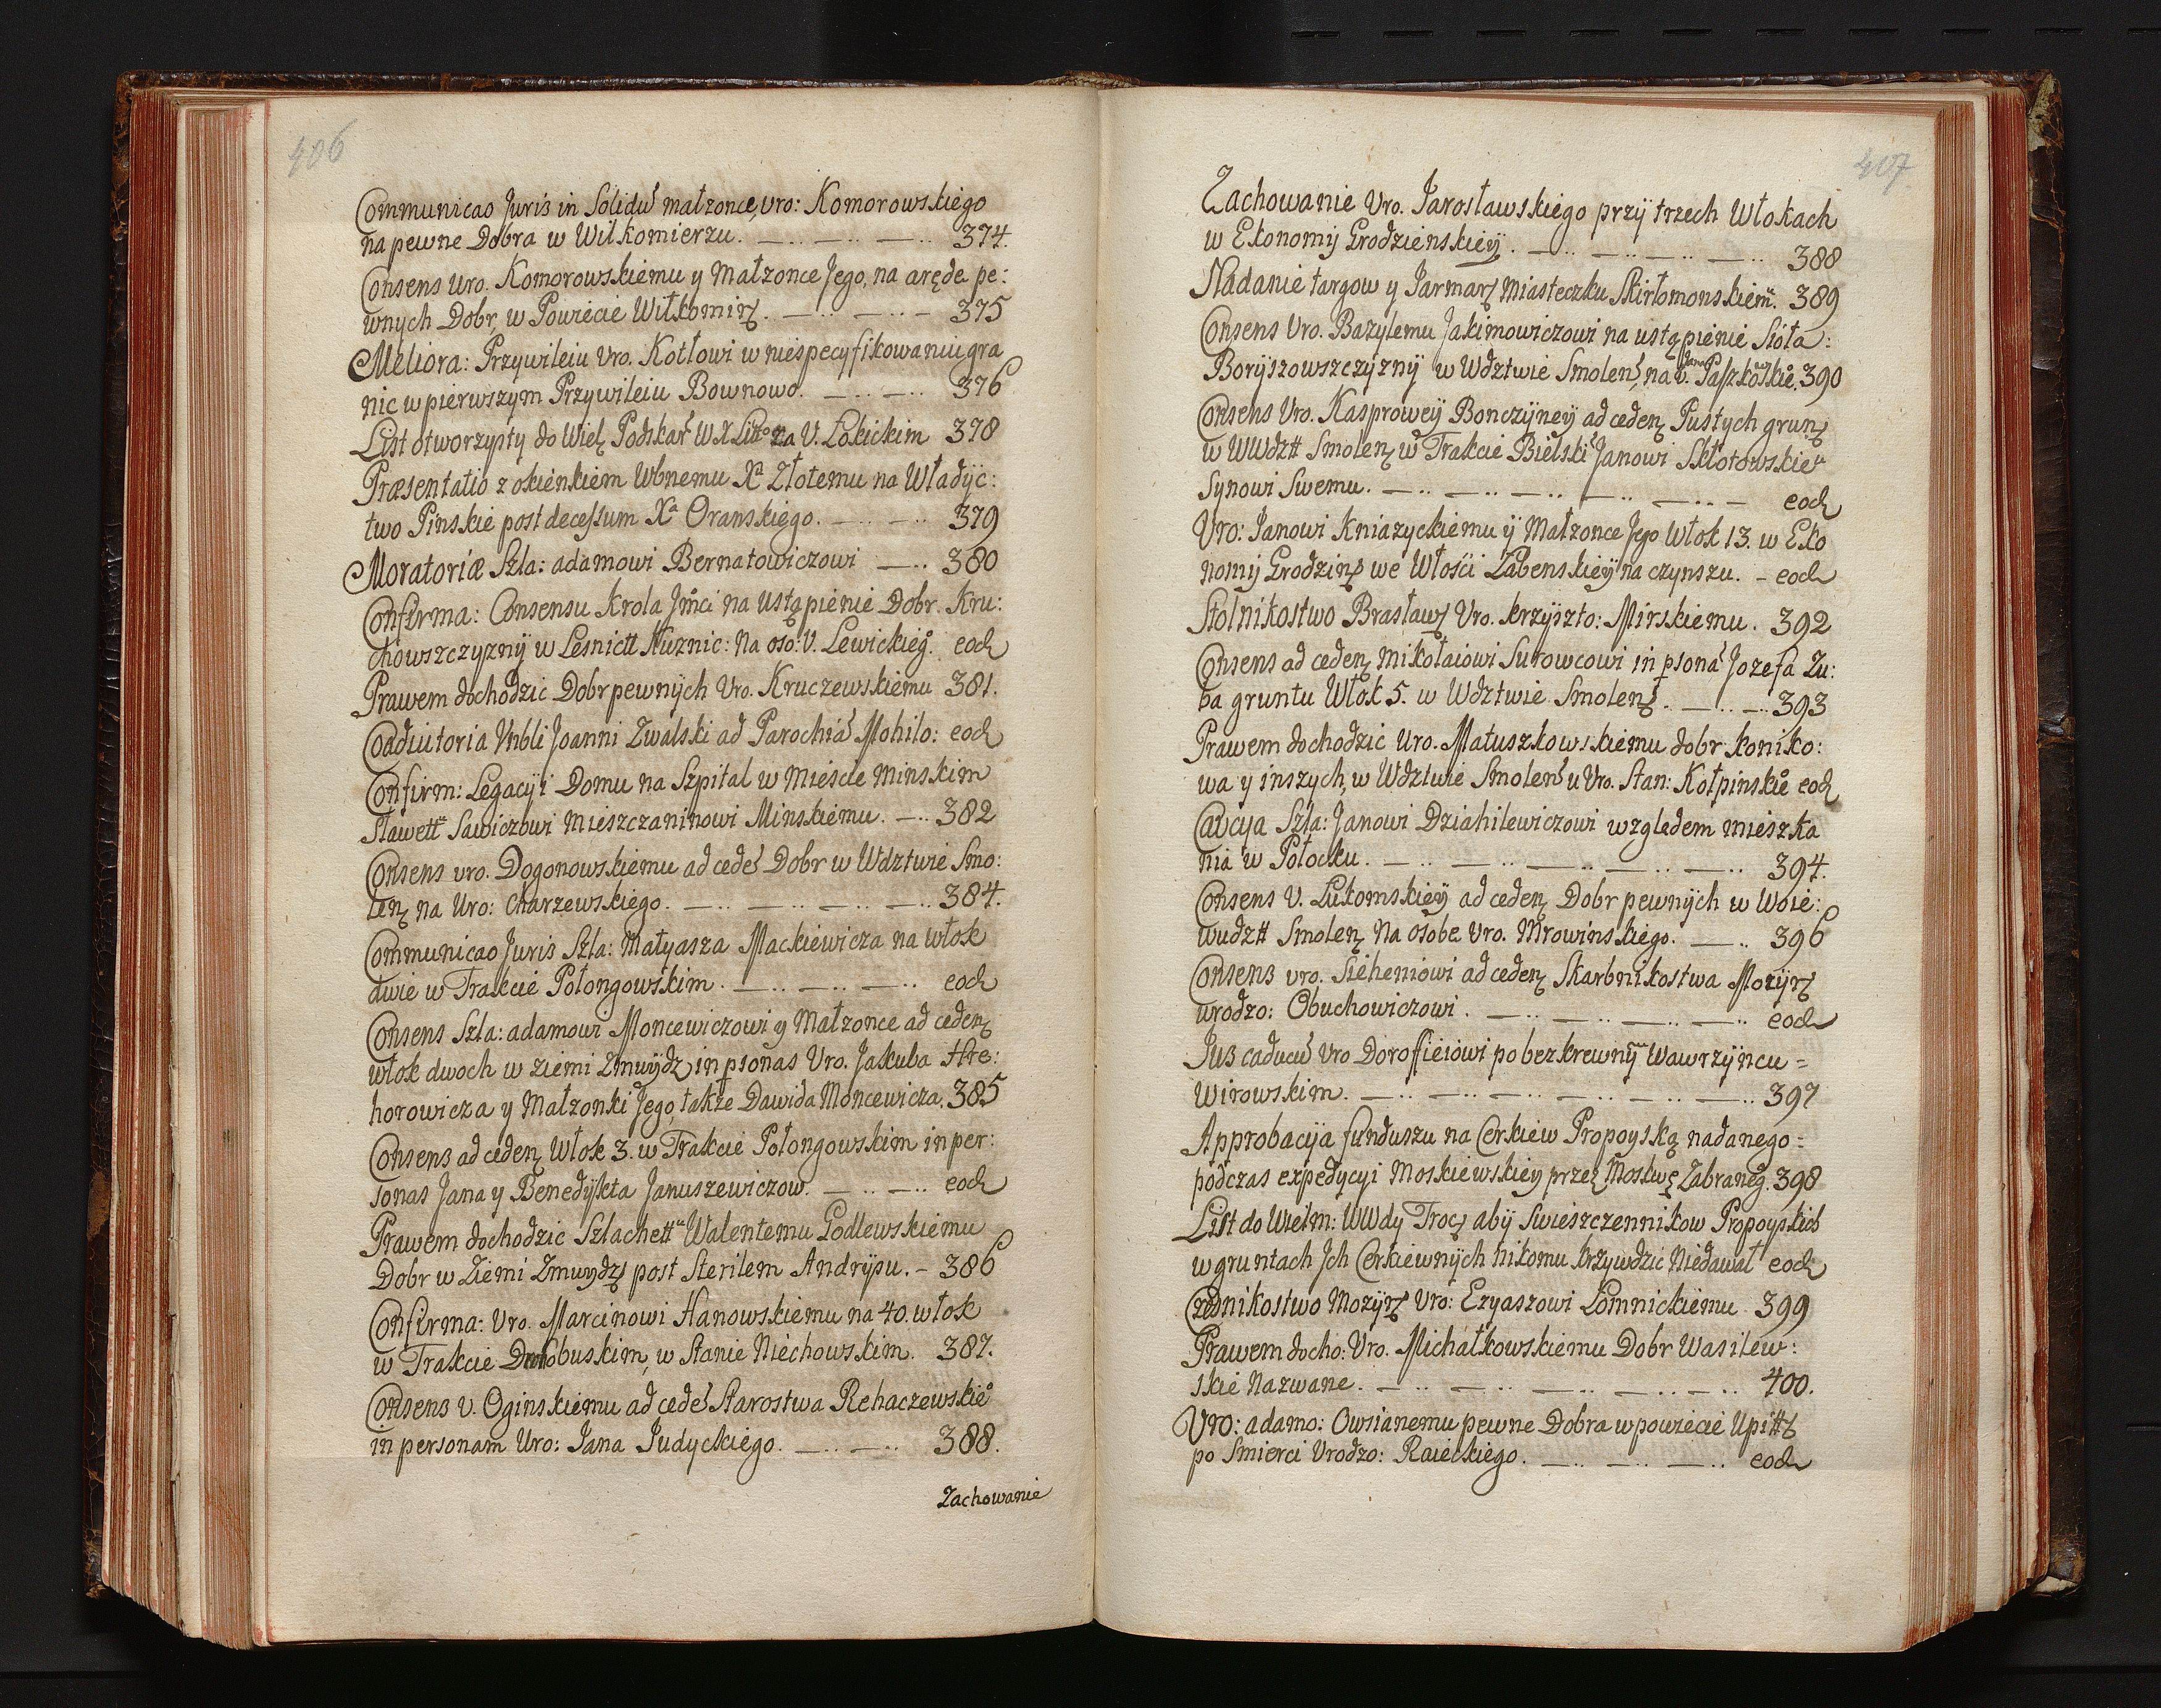 406
Communicao Juris in Solidũ małzonce, vro: Komorowskiego
na pewne Dobra w Wilkomierzu. 374.
Consens Uro. Komorowskiemu y Małzonce Jego, na arędę pe:
wnych Dobr, w Powiecie Wiłkomirz. 375
Meliora: Przywileiu Uro. Kotłowi w niespecyfikowaniu gra
nic w pierwszym Przywileiu Bownowo. 376
List otworzysty do Wiel Podskar W X Litto na V. Łokickim 378
Præsentatio z okienkiem Wbnemu Xa Złotemu na Władyc:
two Pinskie post decessum Xa Oranskiego. 379
Moratoriæ Szla: adamowi Bernatowiczowi 380
Confirma: Consensu Krola Jmci na ustąpienie Dobr. Kru:
chowszczyzny w Lesnictt Kuznic: na oso: V. Lewickieg. eod
Prawem dochodzic Dobr pewnych Uro. Kruczewskiemu 381.
Coadiutoria Vnbli Joanni Zwalski ad Parochiã Mohilo: eod
Confirm: Legacyi Domu na Szpital w Miescie Minskim
Sławettu Sawiczowi Mieszczaninowi Minskiemu. 382
Consens vro. Dogonowskiemu ad cedẽ Dobr w Wdztwie Smo:
lenz na Uro: Charzewskiego. 384.
Communicao Juris Szla: Matyasza Mackiewicza na włok
dwie w Trakcie Połongowskim. eod
Consens Szla: adamowi Moncewiczowi y Małzonce ad cedenz
włok dwoch w ziemi Zmuydz in psonas Vro. Jakuba Hre:
horowicza y Małzonki Jego, także Dawida Moncewicza. 385
Consens ad cedenz Włok 3. w Trakcie Połongowskim in per:
sonas Jana y Benedykta Januszewiczow. eod
Prawem dochodzic Szlachettu Walentemu Godlewskiemu
Dobr w Ziemi Zmuydz post Sterilem Andrysu. 386
Confirma: Vro. Marcinowi Hanowskiemu na 40. włok
w Trakcie Drohobuskim, w Stanie Niechowskim. 387.
Consens V. Oginskiemu ad cedẽ Starostwa Rehaczewskiego
in personam Uro: Jana Judyckiego. 388.
Zachowanie
407
Zachowanie Vro. Jarosławskiego przy trzech Włokach
w Ekonomij Grodzienskiey. 388
Nadanie targow y Jarmarz Miasteczku Skirłomonskiem. 389
Consens Vro. Bazylemu Jakimowiczowi na ustąpienie Sioła:
Boryszowszczyzny w Wdztwie Smolenz, na V. Jana Paszkowskie. 390
Consens Vro. Kasprowey Bonczyney ad cedenz Pustych grunz
w WWdztt Smolenz w Trakcie Bielski Janowi Skłotowskieu
Synowi Swemu. eod
Vro: Janowi Kniazyckiemu y Małzonce Jego Włok 13. w Eko
nomij Grodzinz we Włości Łabenskiey na czynszu. eod
Stolnikostwo Brasławz Vro. Krzyszto: Mirskiemu. 392
Consens ad cedenz Mikołaiowi Surowcowi in psonã Jozefa Zu:
ba gruntu Włok 5. w Wdztwie Smolenz. 393
Prawem dochodzic Uro. Matuszkowskiemu dobr Koniko:
wa y inszych, w Wdztwie Smolenz u Vro. Stan: Kołpinskie eod
Caucya Szla: Janowi Dziahilewiczowi względem mieszka
nia w Połocku. 394.
Consens V. Łukomskiey ad cedenz Dobr pewnych w Woie:
wudztt Smolenz na osobe Vro. Mrowinskiego. 396
Consens vro. Sieheniowi ad cedenz Skarbnikostwa Mozyrz
urodzo: Obuchowiczowi. eod
Jus caducũ Vro Doroffieiowi po bezkrewnym Wawrzyncu =
Wirowskim. 397
Approbacija funduszu na Cerkiew Propoyską nadanego =
podczas expedycyi Moskiewskiey przez Moskwę Zabraneg. 398
List do Wielm: WWdy Trocz aby Swieszczennikow Propoyskich
w gruntach Jch Cerkiewnych nikomu krzywdzic Niedawał eod
Czesnikostwo Mozyrz Vro: Ezyaszowi Łomnickiemu 399
Prawem docho: Vro. Michałkowskiemu Dobr Wasilew:
skie Nazwane. 400.
Vro: adamo: Owsianemu pewne Dobra w powiecie Upitts
po Smierci Vrodzo: Raieckiego. eod